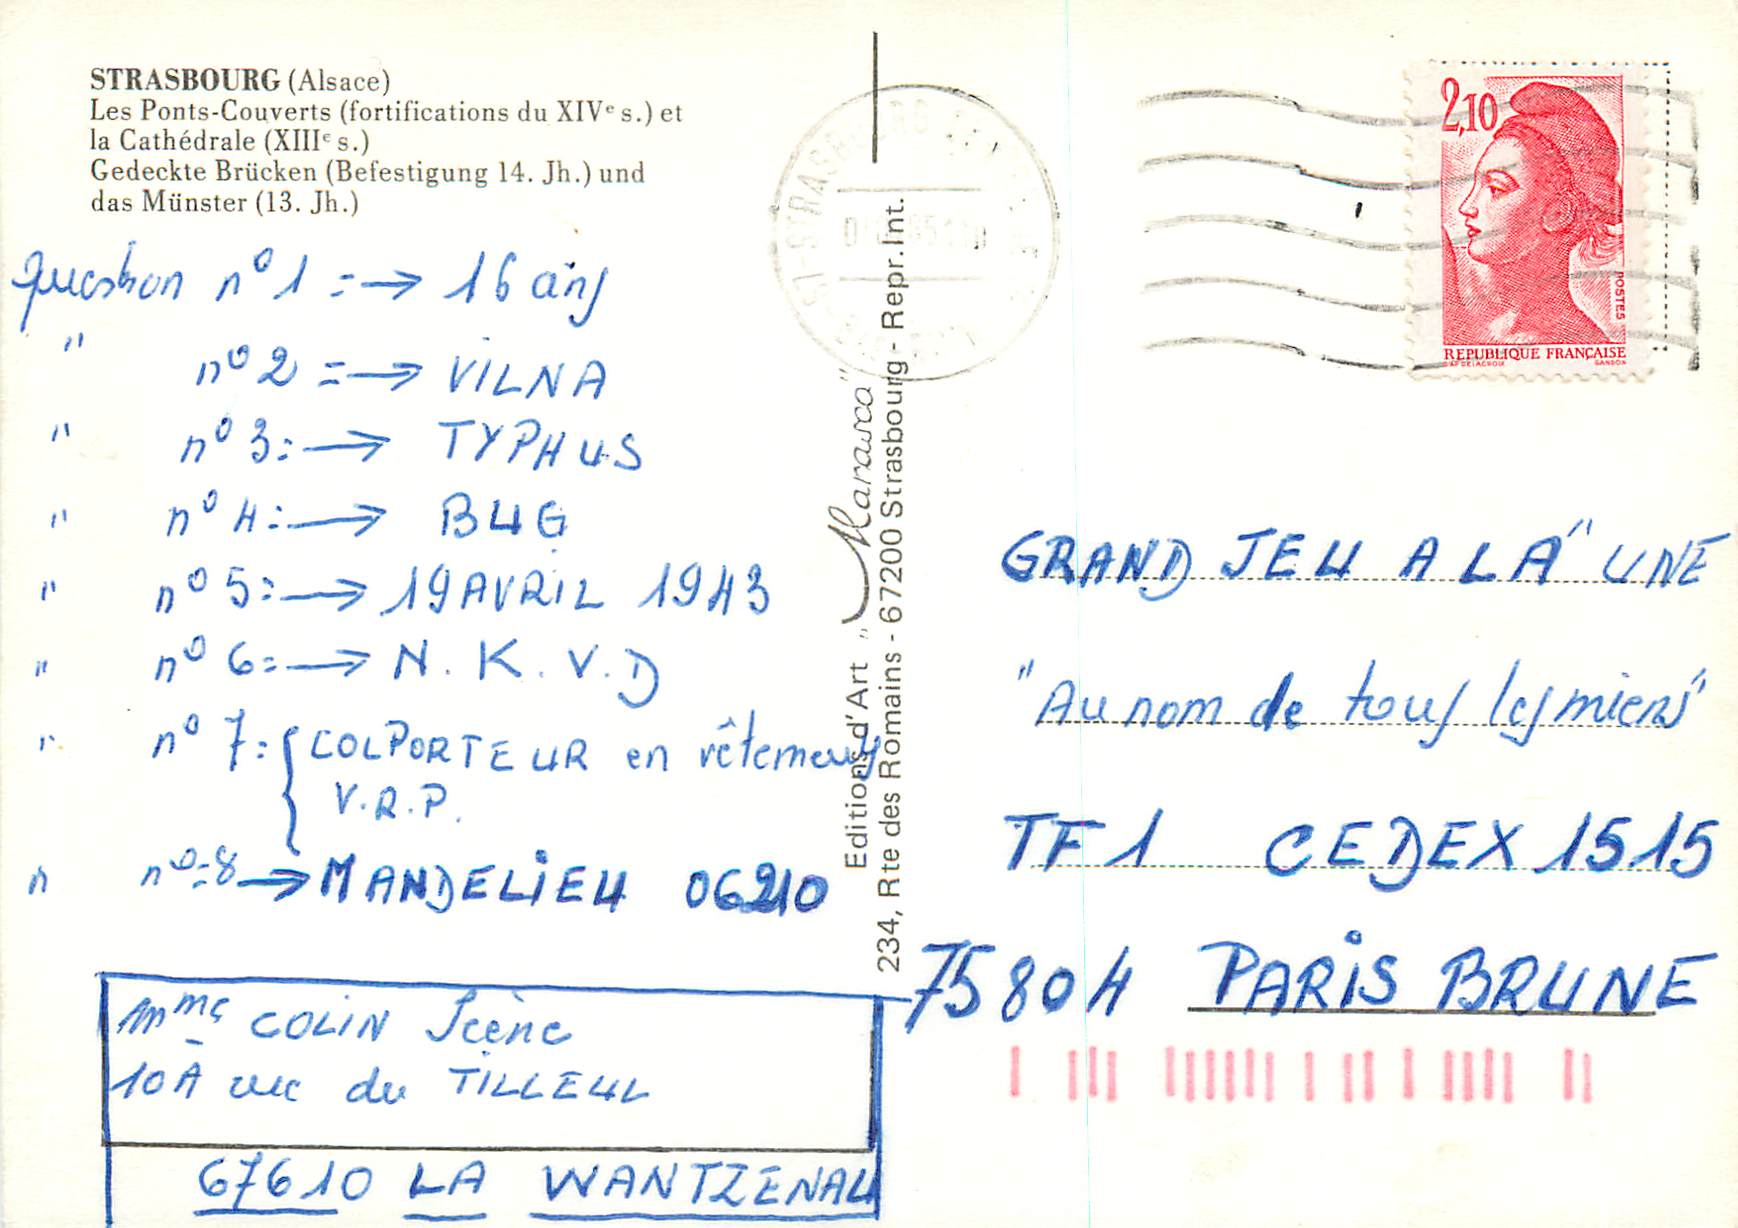 STRASBOURG (Alsace)
Les Ponts-Couverts (fortifications du XIVe s.) et
la Cathédrale (XIIIe s.)
Gedeckte Brücken (Befestigung 14. Jh.) und
das Münster (13. Jh.)
question n° 1 :→ 16 ans
" n° 2 :→ VILNA
" n° 3 :→ TYPHUS
" n° 4 :→ BUG
" n° 5 :→ 19 AVRIL 1943
" n° 6 :→ N.K.V.D
" n° 7 : { COLPORTEUR en vêtements
V.R.P.
" n° 8 → MANDELIEU 06210
Mme COLIN
10A rue du TILLEUL
67610 LA WANTZENAU
Editions d'Art "Marasco"
234, Rte des Romains - 67200 Strasbourg - Repr. Int.
STRASBOURG
2,10
POSTES
REPUBLIQUE FRANÇAISE
D'AP DELACROIX GANDON
GRAND JEU A LA "UNE
"Au nom de tous les miens"
TF1 CEDEX 1515
75804 PARIS BRUNE